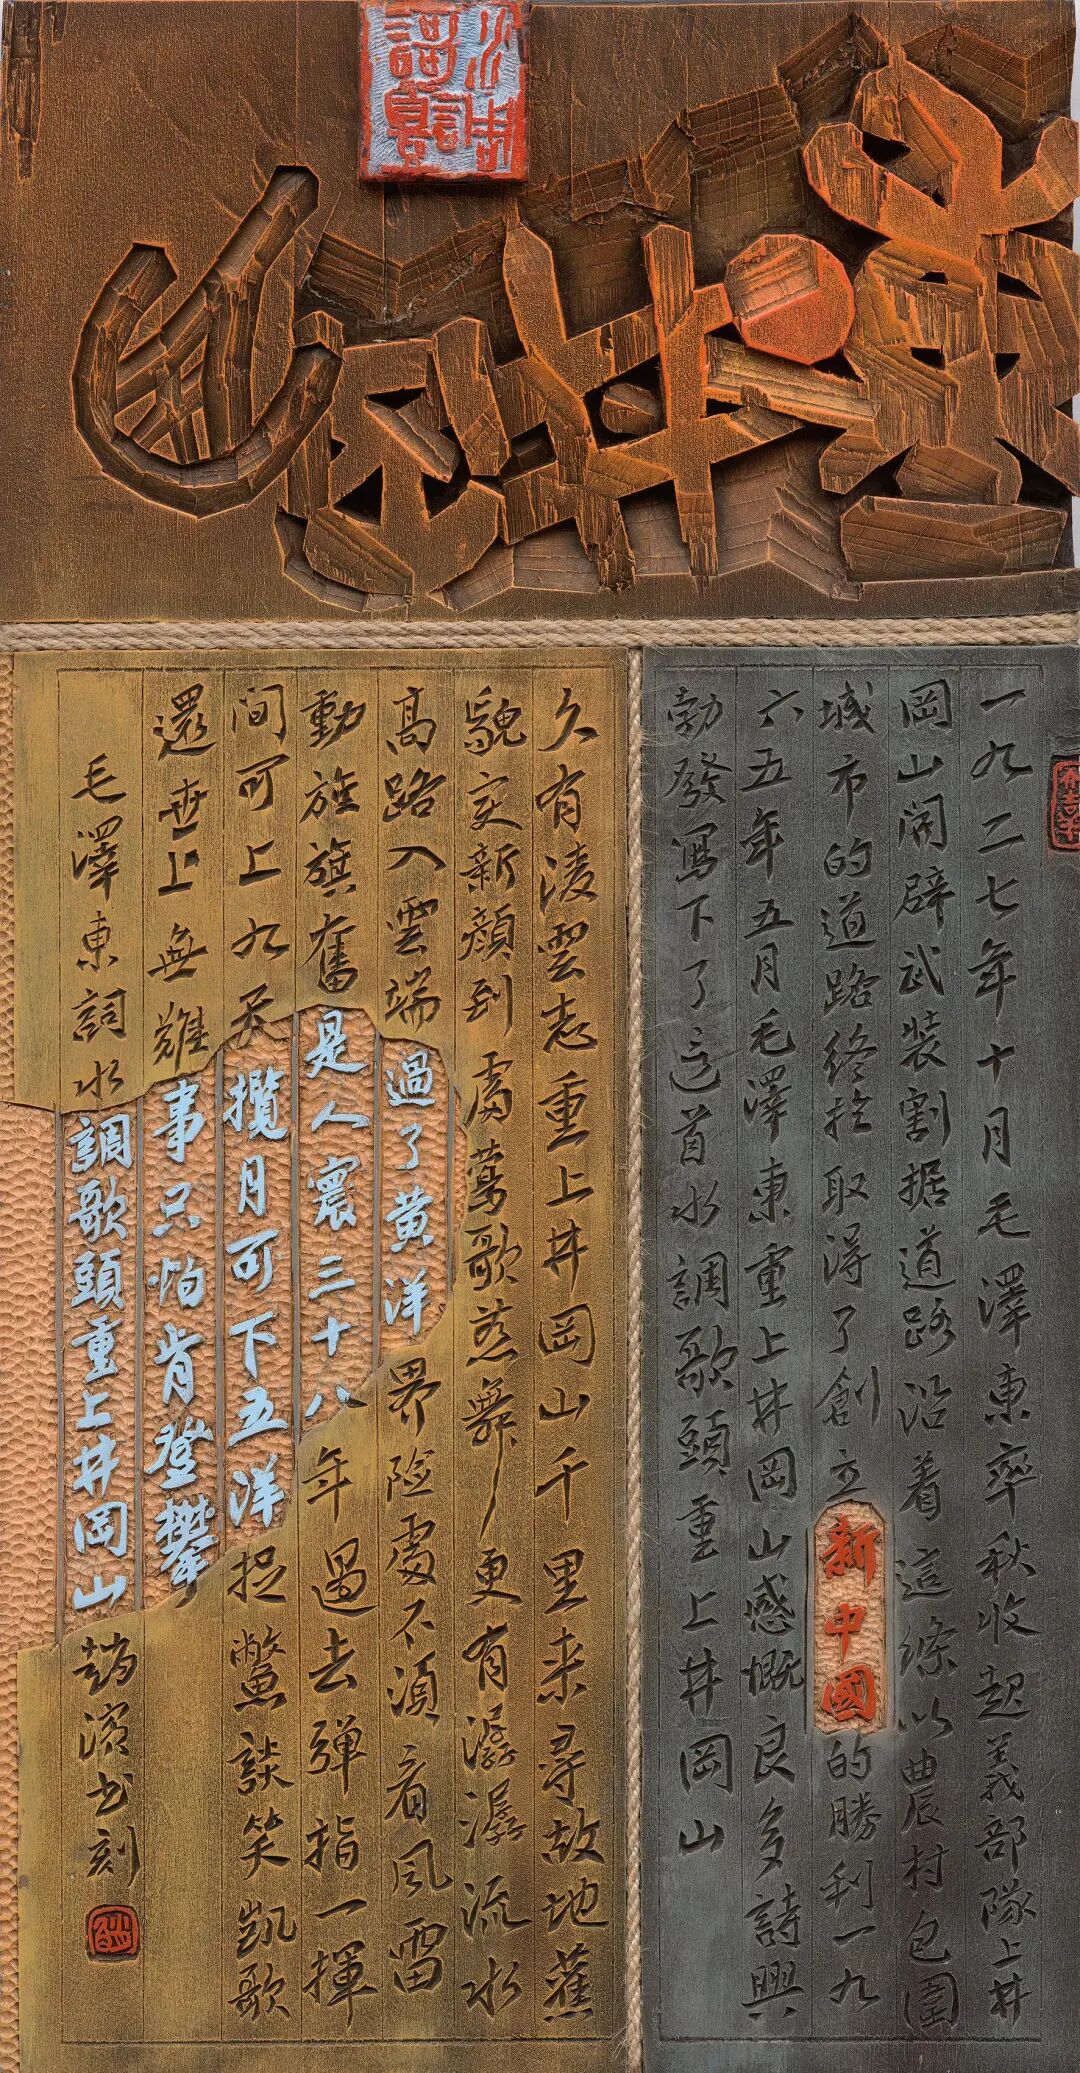 重上井岡山
一九二七年十月毛澤東率秋收起義部隊上井
岡山開辟武装割据道路沿着這條以農村包圍
城市的道路終於取得了創立新中國的勝利一九
六五年五月毛澤東重上井岡山感慨良多詩興
勃發寫下了这首水調歌頭重上井岡山
久有淩雲志重上井岡山千里来尋故地舊
貌变新顔到處鶯歌燕舞更有潺潺流水
高路入雲端過了黄洋界险處不須看風雷
動旌旗奮是人寰三十八年過去弹指一揮
间可上九天攬月可下五洋捉鱉談笑凱歌
還世上無難事只怕肯登攀
毛澤東詞水調歌頭重上井岡山趙濱书刻